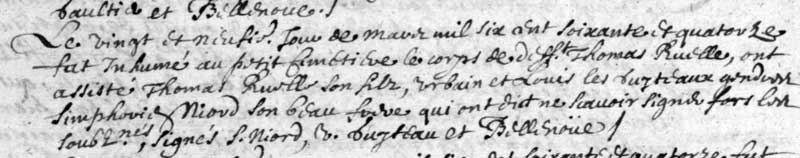 Baultie et Bellenoue /
Le vingt et neufie. Jour de Mars mil six cent soixante et quatorze
fut Inhumé au petit cimetiere le corps de deff.t Thomas Ruelle, ont
assisté Thomas Ruelle son filz, urbain et Louis les buzteaux gendres
simphorie Niord son beau frere qui ont dict ne scavoir signer fors les
soubz.nés, signés S. Niord, v. buzteau et Bellenoüe /
soixante et quatorze fut